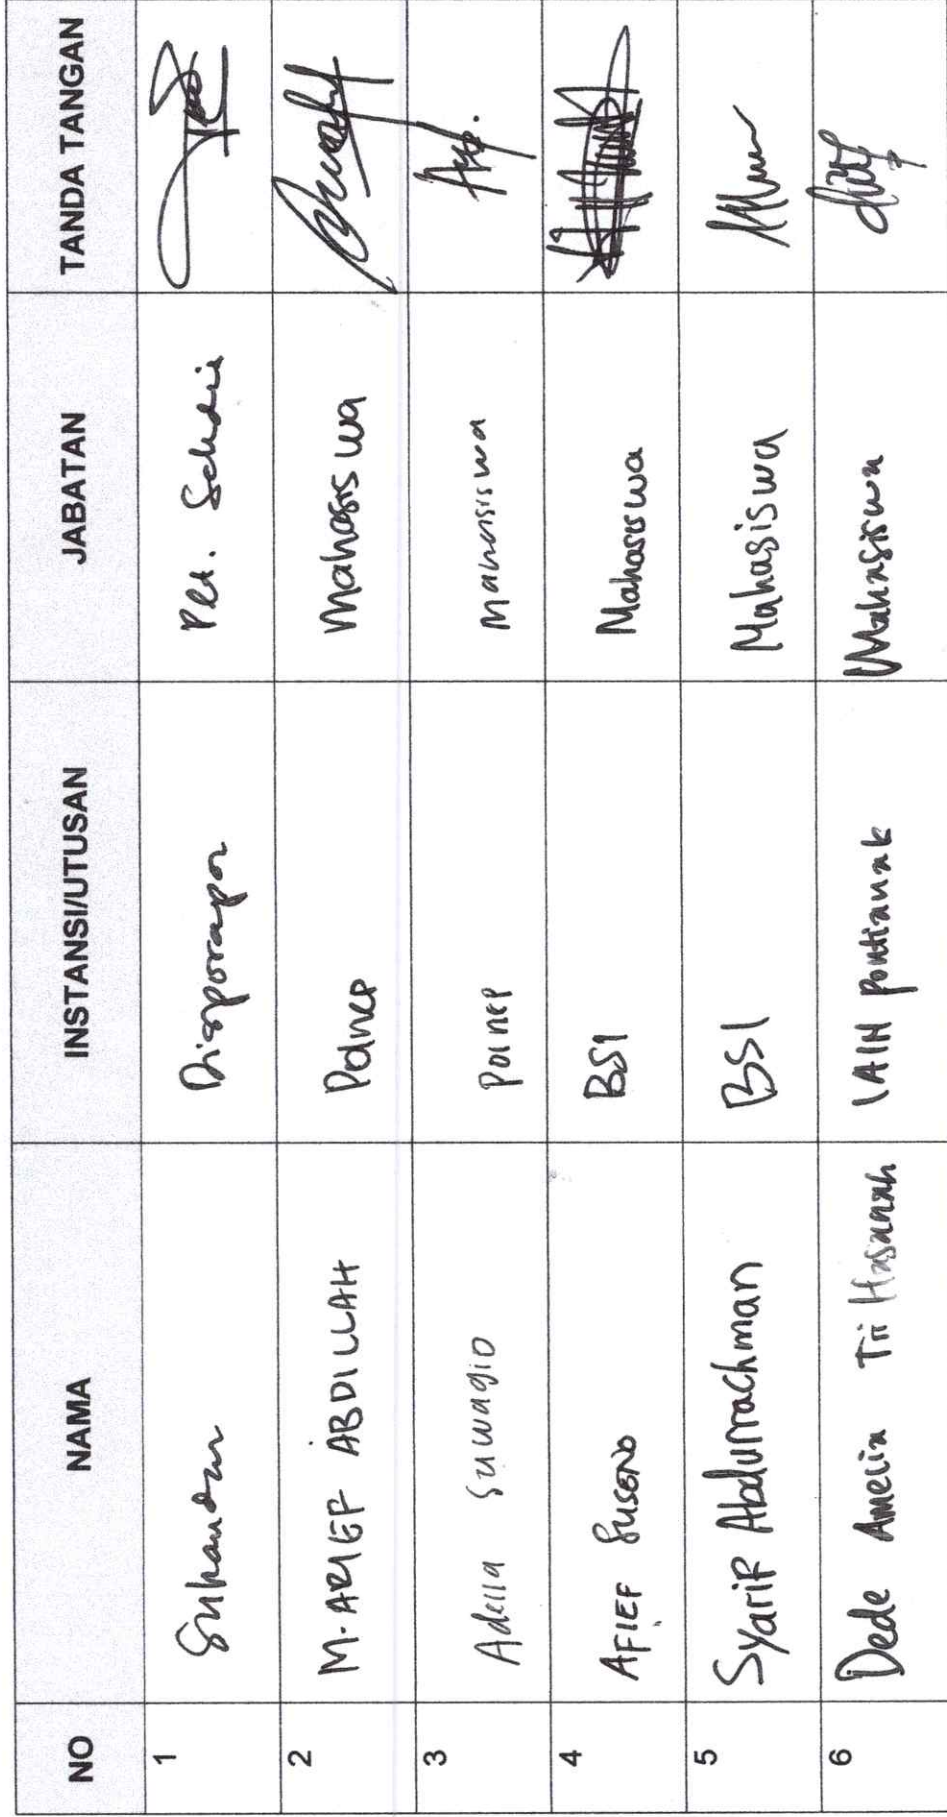 NO NAMA INSTANSI/UTUSAN JABATAN TANDA TANGAN
1 Suhandar Disporapar Plt.
2 M. ARIEF ABDILLAH Polnep Mahasiswa
3 Adella Suwagio Polnep Mahasiswa
4 AFIEF SUSENO BSI Mahasiswa
5 Syarif Abdurrachman BSI Mahasiswa
6 Dede Amelia Tri Hasanah IAIN Pontianak Mahasiswa